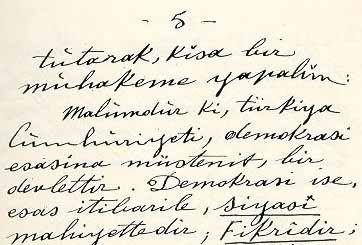 - 5 -
tutarak, kısa bir
muhakeme yapalım:
Malûmdur ki, türkiya
Cümhuriyeti, demokrasi
esasına müstenit, bir
devlettir. Demokrasi ise,
esas itibarile, siyasî
mahiyettedir; Fikridir;